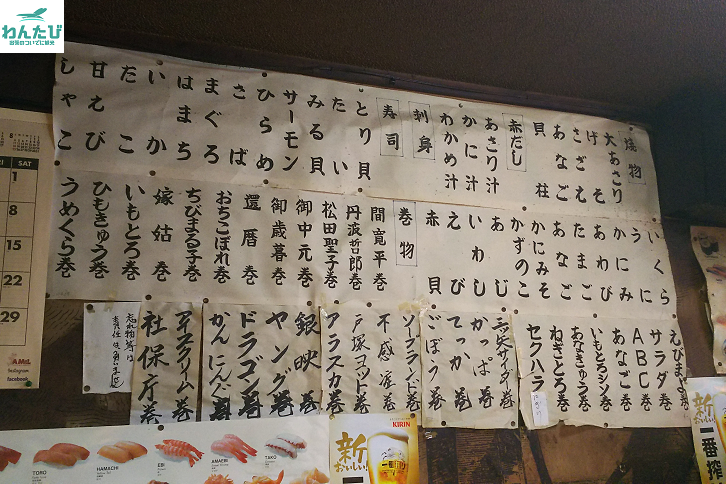 わんたび
出張のついでに観光
焼物
大あさり
げそ
さざえ
あなご
貝柱
赤だし
あさり汁
かに汁
わかめ汁
刺身
寿司
とり貝
たい
みる貝
サーモン
ひらめ
さば
まぐろ
はまち
いか
たこ
甘えび
しゃこ
いくら
うに
かにみ
あわび
たまご
かにみそ
かずのこ
あじ
いわし
えび
赤貝
巻物
間寛平巻
丹波哲郎巻
松田聖子巻
御中元巻
御歳暮巻
還暦巻
ちびまる子巻
おちこぼれ巻
嫁姑巻
いもとろ巻
ひもきゅう巻
うめくら巻
えびまヨ巻
サラダ巻
ABC巻
あなご巻
いもとろシソ巻
あなきゅう巻
ねぎとろ巻
セクハラ
三矢サイダー巻
かっぱ巻
てっか巻
ごぼう巻
ソープランド巻
不感症巻
戸塚ヨット巻
アラスカ巻
銀映巻
ヤング巻
ドラゴン巻
かんにんぐ巻
アイスクリーム巻
社保庁巻
忘れ物等は
責任
8
SAT
1
8
15
22
29
Instagram
facebook
TORO
HAMACHI
EBI
AMAEBI
TAKO
KIRIN
新
おいしい!
新
おいしい!
一番搾